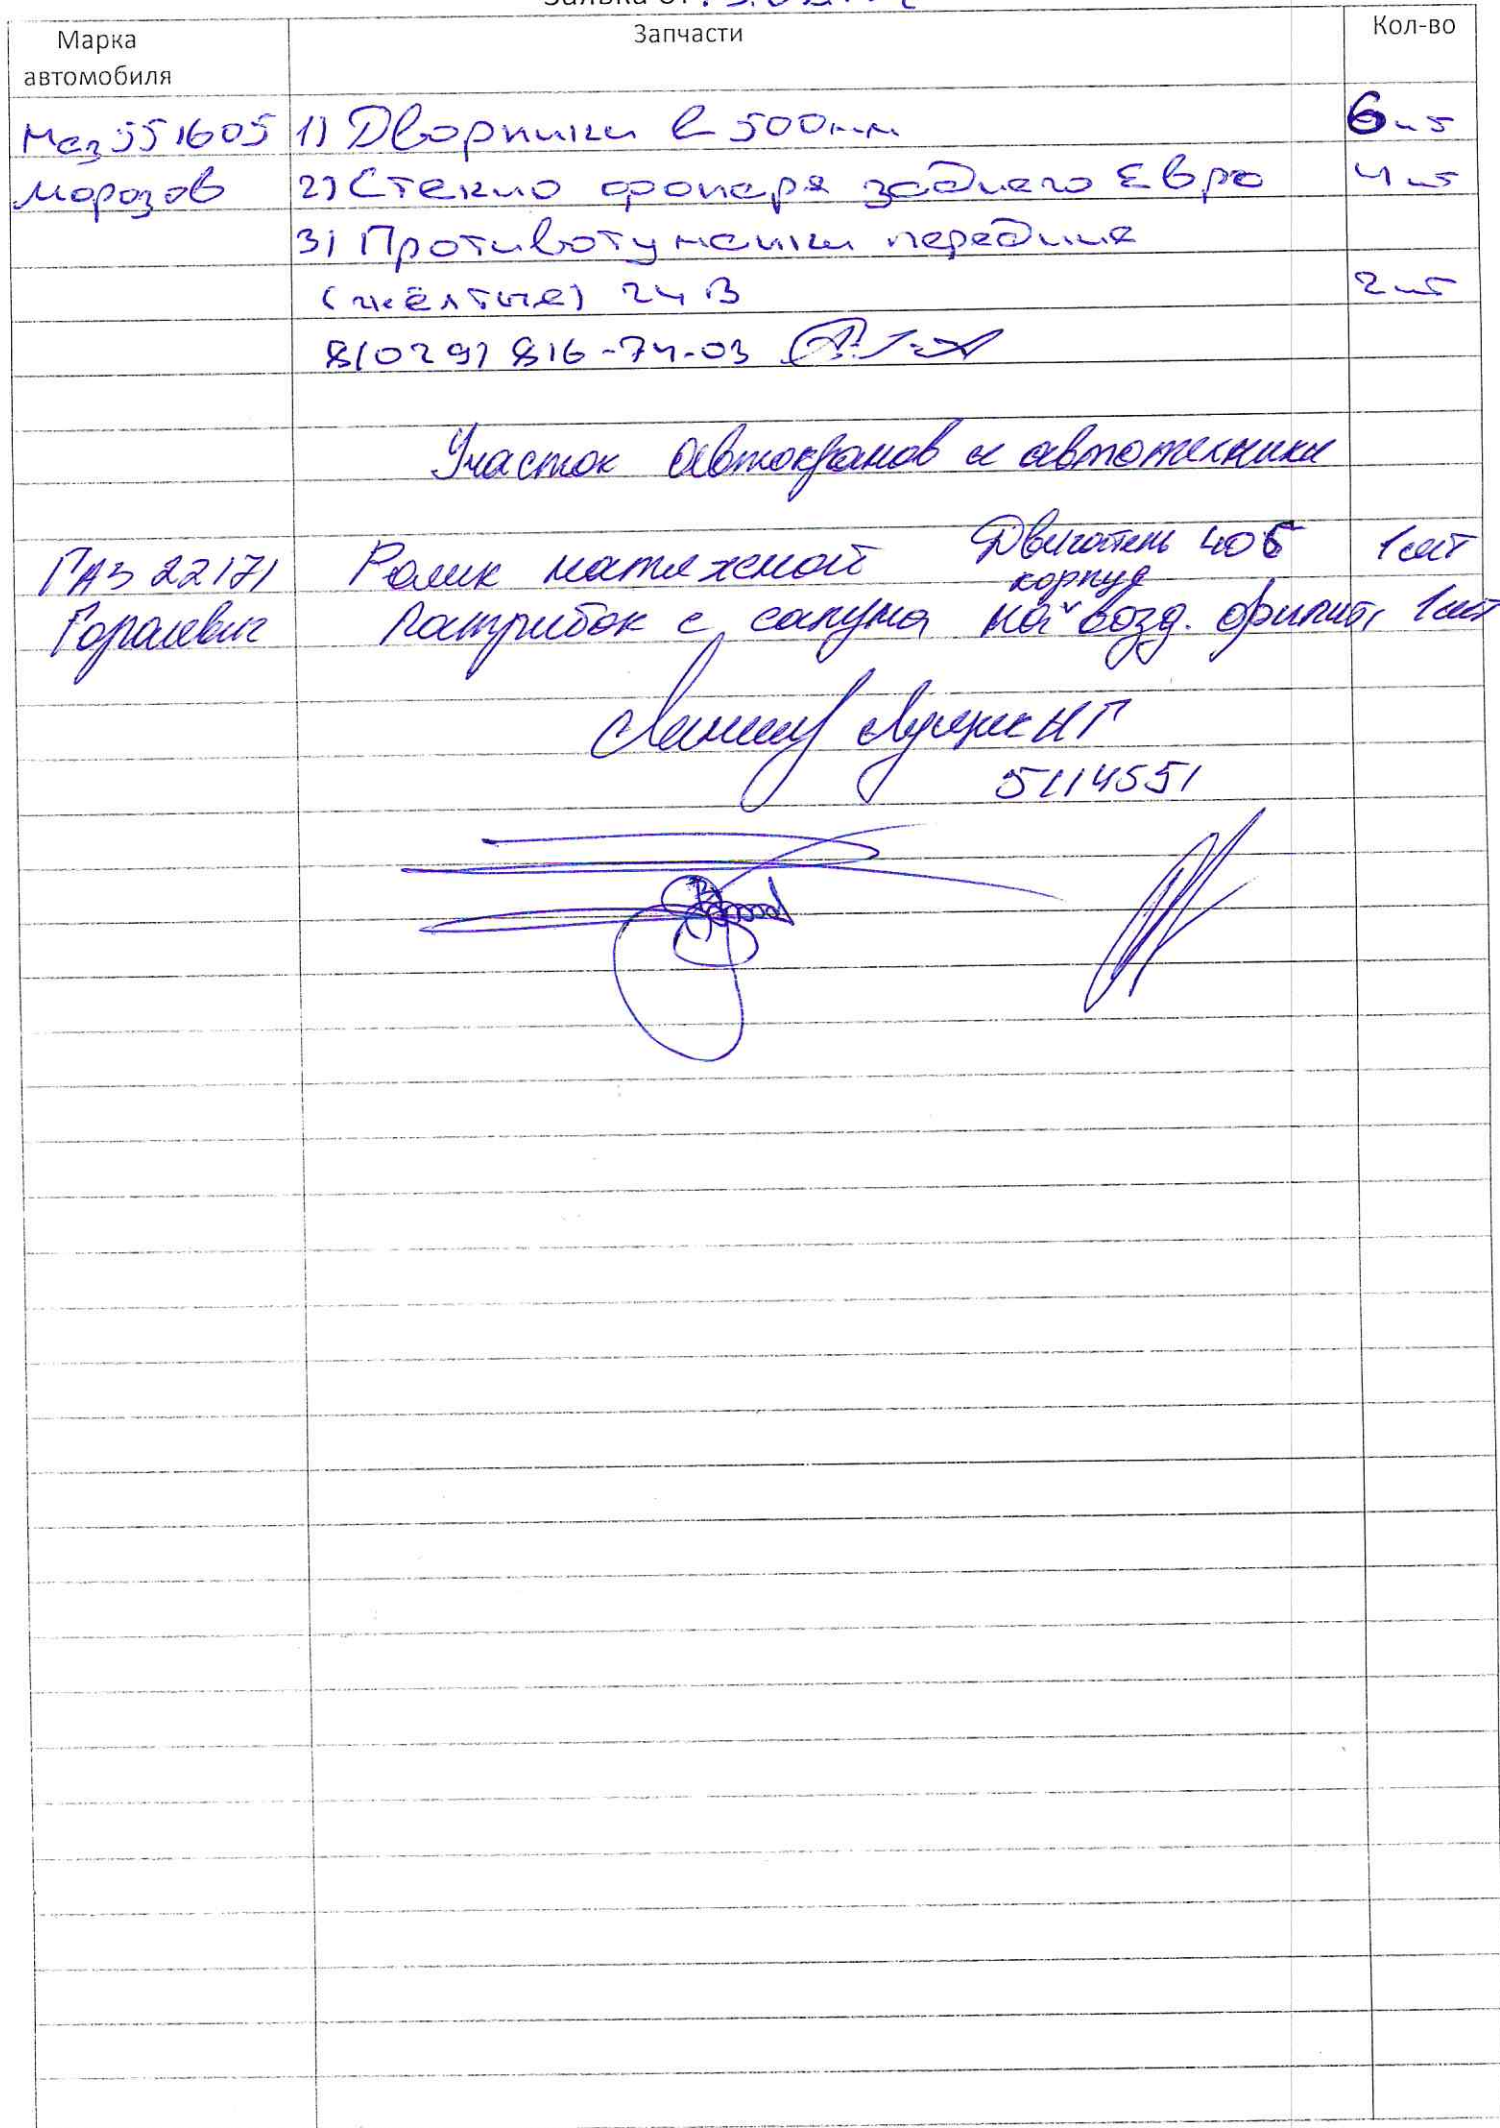 Заявка от
Марка автомобиля Запчасти Кол-во
Маз 551605 1) Дворники l 500мм 6шт
Морозов 2) Стекло фонаря заднего Евро 4шт
3) Противотуманки передние
(жёлтые) 24 В 2шт
8(029) 816-74-03
Участок автокранов и автотехники
ГАЗ 22171 Ролик натяжной Двигатель 405 1шт
корпус
Патрибок с сапуна на возд. фильт. 1шт
НГ
5114551